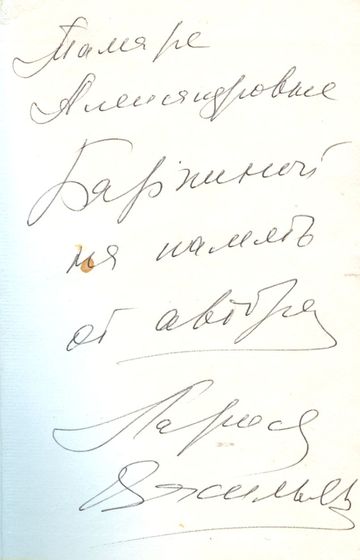 Тамаре
Александровне
Баржиной
на память
от автора
Лариса
Васильев